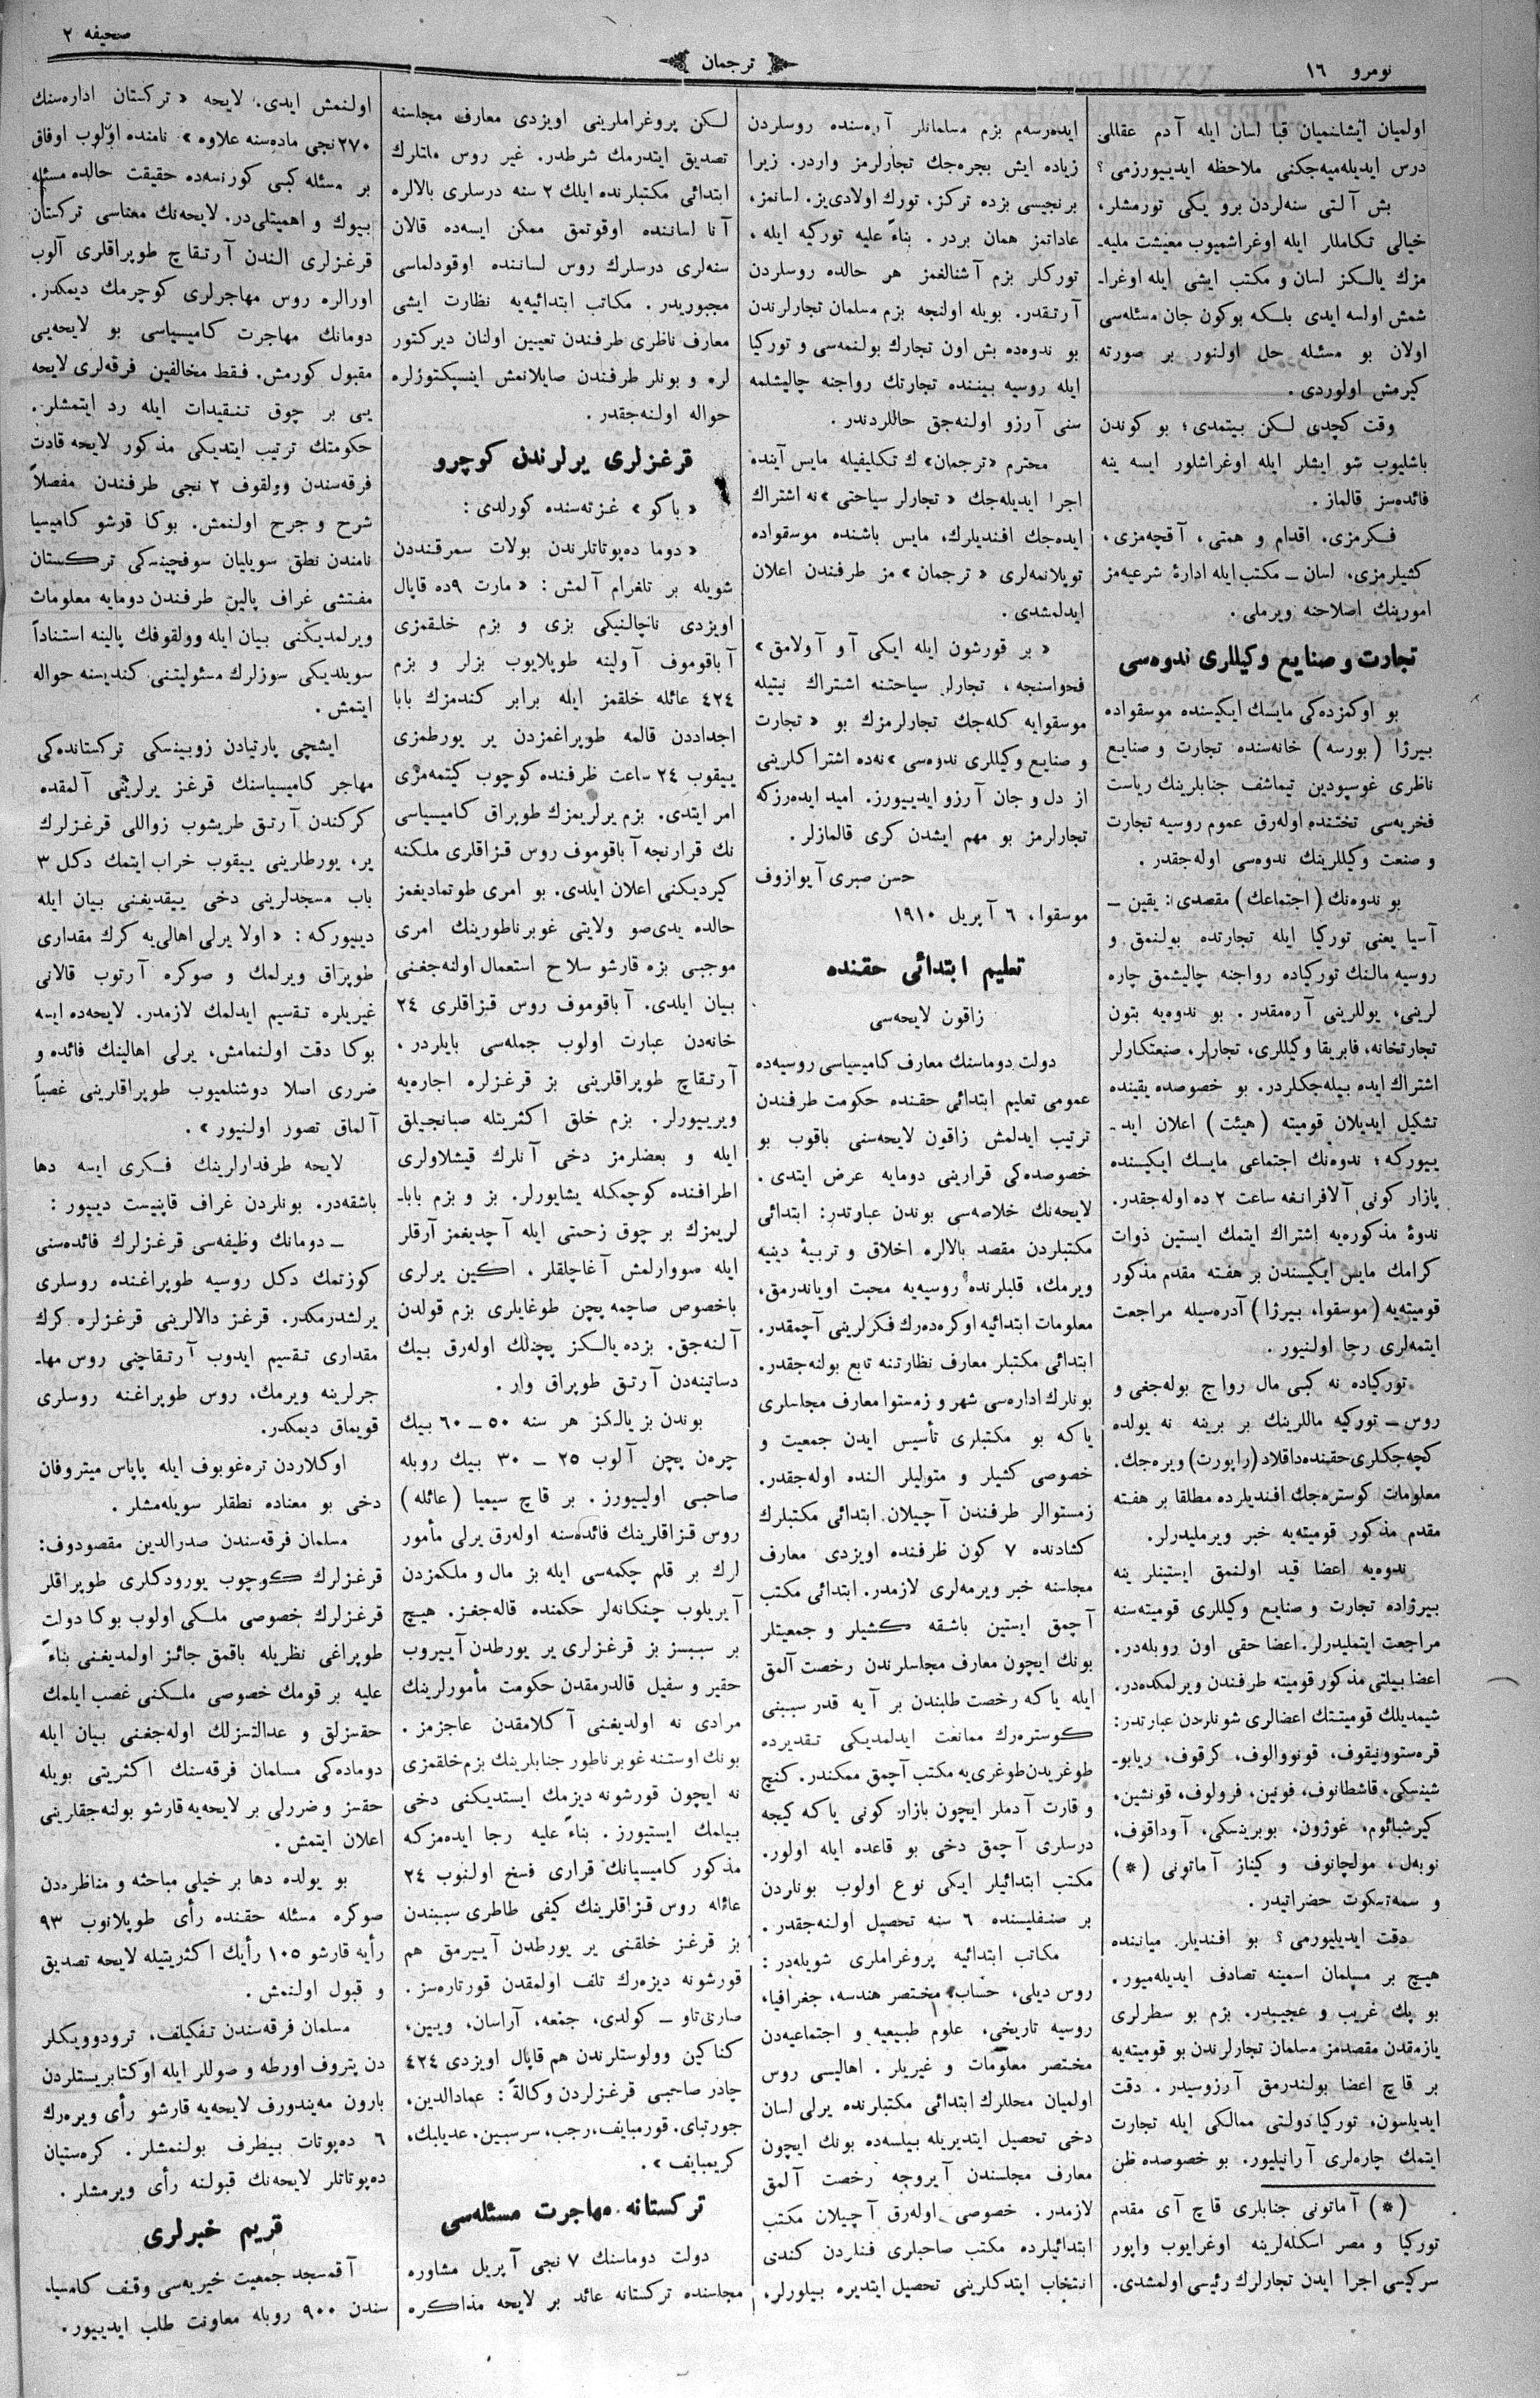 نومرو ١٦
ترجمان
صحيفه ٢
اولميان ايشلنميان قبا لسان ايله آدم عقللى
درس ايديله‌ميه‌جكنى ملاحظه ايدييورزمى؟
بش آلتى سنه‌لردن برو يكى تورمشلر،
خيالى تكاملار ايله اوغراشميوب معيشت مليه‌ـ
مزك يالكز لسان و مكتب ايشى ايله اوغراـ
شمش اولسه ايدى بلكه بوكون جان مسئله‌سى
اولان بو مسئله حل اولنور بر صورته
كيرمش اولوردى.
وقت كچدى لكن بيتمدى؛ بو كوندن
باشليوب شو ايشلر ايله اوغراشلور ايسه ينه
فائده‌سز قالماز.
فكرمزى، اقدام و همتى، آقچه‌مزى،
كشيلرمزى، لسان ـ مكتب ايله ادارۀ شرعيه‌مز
امورينك اصلاحنه ويرملى.
تجارت و صنايع وكيللرى ندوه‌سى
بو اوكمزده‌كى مايسك ايكيسنده موسقواده
بيرژا (بورسه) خانه‌سنده تجارت و صنايع
ناظرى غوسپودين تيماشف جنابلرينك رياست
فخريه‌سى تختنده اوله‌رق عموم روسيه تجارت
و صنعت وكيللرينك ندوه‌سى اوله‌جقدر.
بو ندوه‌نك (اجتماعك) مقصدى: يقين ـ
آسيا يعنى توركيا ايله تجارتده بولنمق و
روسيه مالنك توركياده رواجنه چاليشمق چاره
لرينى، يوللرينى آره‌مقدر. بو ندوه‌يه بتون
تجارتخانه، فابريقا وكيللرى، تجارلر، صنعتكارلر
اشتراك ايده بيله‌جكلردر. بو خصوصده يقينده
تشكيل ايديلان قوميته (هيئت) اعلان ايدـ
ييوركه؛ ندوه‌نك اجتماعى مايسك ايكيسنده
پازار كونى آلافرانغه ساعت ٢ ده اوله‌جقدر.
ندوۀ مذكوره‌يه اشتراك ايتمك ايستين ذوات
كرامك مايس ايكيسندن بر هفته مقدم مذكور
قوميته‌يه (موسقوا، بيرژا) آدره‌سيله مراجعت
ايتمه‌لرى رجا اولنيور.
توركياده نه كبى مال رواج بوله‌جغى و
روس ـ توركيه ماللرينك بر برينه نه يولده
كچه‌جكلرى حقنده داقلاد (راپورت) ويره‌جك،
معلومات كوستره‌جك افنديلرده مطلقا بر هفته
مقدم مذكور قوميته‌يه خبر ويرمليدرلر.
ندوه‌يه اعضا قيد اولنمق ايستينلر ينه
بيرژاده تجارت و صنايع وكيللرى قوميته‌سنه
مراجعت ايتمليدرلر. اعضا حقى اون روبله‌در.
اعضا بيلتى مذكور قوميته طرفندن ويرلمكده‌در.
شيمديلك قوميتنك اعضالرى شونلردن عبارتدر:
قره‌ستوونيقوف، قونووالوف، كرقوف، ريابوـ
شينسكى، قاشطانوف، فونين، فرولوف، قونشين،
كيرشبائوم، غوژون، بوبرينسكى، آوداقوف،
نوبه‌ل، مولچانوف و كيناز آماتونى (*)
و سمه‌تسكوت حضراتيدر.
دقت ايديليورمى؟ بو افنديلر ميانده
هيچ بر مسلمان اسمينه تصادف ايديله‌ميور.
بو پك غريب و عجيبدر. بزم بو سطرلرى
يازمقدن مقصدمز مسلمان تجارلرندن بو قوميته‌يه
بر قاچ اعضا بولندرمق آرزوسيدر. دقت
ايديلسون، توركيا دولتى ممالكى ايله تجارت
ايتمك چاره‌لرى آرانيليور. بو خصوصده ظن
(*) آماتونى جنابلرى قاچ آى مقدم
توركيا و مصر اسكله‌لرينه اوغرايوب واپور
سركيسى اجرا ايدن تجارلرك رئيسى اولمشدى.
ايده‌رسه‌م بزم مسلمانلر آره‌سنده روسلردن
زياده ايش بجره‌جك تجارلرمز واردر. زيرا
برنجيسى بزده تركز، تورك اولادى‌يز. لسانمز،
عاداتمز همان بردر. بناءً عليه توركيه ايله،
توركلر بزم آشنالغمز هر حالده روسلردن
آرتقدر. بويله اولنجه بزم مسلمان تجارلرندن
بو ندوه‌ده بش اون تجارك بولنمه‌سى و توركيا
ايله روسيه بيننده تجارتك رواجنه چاليشلمه
سنى آرزو اولنه‌جق حاللردندر.
محترم «ترجمان» ك تكليفيله مايس آينده
اجرا ايديله‌جك «تجارلر سياحتى» نه اشتراك
ايده‌جك افنديلرك، مايس باشنده موسقواده
توپلانمه‌لرى «ترجمان» مز طرفندن اعلان
ايدلمشدى.
«بر قورشون ايله ايكى آو آولامق»
فحواسنجه، تجارلر سياحتنه اشتراك نيتيله
موسقوايه كله‌جك تجارلرمزك بو «تجارت
و صنايع وكيللرى ندوه‌سى» نه‌ده اشتراكلرينى
از دل و جان آرزو ايدييورز. اميد ايده‌رزكه
تجارلرمز بو مهم ايشدن كرى قالمازلر.
حسن صبرى آيوازوف
موسقوا، ٦ آپريل ١٩١٠
تعليم ابتدائى حقنده
زاقون لايحه‌سى
دولت دوماسنك معارف كاميسياسى روسيه‌ده
عمومى تعليم ابتدائى حقنده حكومت طرفندن
ترتيب ايدلمش زاقون لايحه‌سنى باقوب بو
خصوصده‌كى قرارينى دومايه عرض ايتدى.
لايحه‌نك خلاصه‌سى بوندن عبارتدر: ابتدائى
مكتبلردن مقصد بالالره اخلاق و تربيۀ دينيه
ويرمك، قلبلرنده روسيه‌يه محبت اوياندرمق،
معلومات ابتدائيه اوكره‌ده‌رك فكرلرينى آچمقدر.
ابتدائى مكتبلر معارف نظارتنه تابع بولنه‌جقدر.
بونلرك اداره‌سى شهر و زمستوا معارف مجلسلرى
ياكه بو مكتبلرى تأسيس ايدن جمعيت و
خصوصى كشيلر و متوليلر النده اوله‌جقدر.
زمستوالر طرفندن آچيلان ابتدائى مكتبلرك
كشادنده ٧ كون ظرفنده اويزدى معارف
مجلسنه خبر ويرمه‌لرى لازمدر. ابتدائى مكتب
آچمق ايستين باشقه كشيلر و جمعيتلر
بونك ايچون معارف مجلسلرندن رخصت آلمق
ايله ياكه رخصت طلبندن بر آيه قدر سببنى
كوستره‌رك ممانعت ايدلمديكى تقديرده
طوغريدن طوغرى‌يه مكتب آچمق ممكندر. كنج
و قارت آدملر ايچون بازار كونى ياكه كيجه
درسلرى آچمق دخى بو قاعده ايله اولور.
مكتب ابتدائيلر ايكى نوع اولوب بونلردن
بر صنفليسنده ٦ سنه تحصيل اولنه‌جقدر.
مكاتب ابتدائيه پروغراملرى شويله‌در:
روس ديلى، حساب، مختصر هندسه، جغرافيا،
روسيه تاريخى، علوم طبيعيه و اجتماعيه‌دن
مختصر معلومات و غيريلر. اهاليسى روس
اولميان محللرك ابتدائى مكتبلرنده يرلى لسان
دخى تحصيل ايتديريله بيلسه‌ده بونك ايچون
معارف مجلسندن آيروجه رخصت آلمق
لازمدر. خصوصى اوله‌رق آچيلان مكتب
ابتدائيلرده مكتب صاحبلرى فنلردن كندى
انتخاب ايتدكلرينى تحصيل ايتديره بيلورلر،
لكن پروغراملرينى اويزدى معارف مجلسنه
تصديق ايتدرمك شرطدر. غير روس ملتلرك
ابتدائى مكتبلرنده ايلك ٢ سنه درسلرى بالالره
آنا لساننده اوقوتمق ممكن ايسه‌ده قالان
سنه‌لرى درسلرك روس لساننده اوقودلماسى
مجبوريدر. مكاتب ابتدائيه‌يه نظارت ايشى
معارف ناظرى طرفندن تعيين اولنان ديركتور
لره و بونلر طرفندن صايلانمش اينسپكتوژلره
حواله اولنه‌جقدر.
قرغزلرى يرلرندن كوچرو
«باكو» غزته‌سنده كورلدى:
«دوما ده‌پوتاتلرندن بولات سمرقنددن
شويله بر تلغرام آلمش: «مارت ٩ده قاپال
اويزدى ناچالنيكى بزى و بزم خلقمزى
آباقوموف آولينه طوپلايوب بزلر و بزم
٤٢٤ عائله خلقمز ايله برابر كندمزك بابا
اجداددن قالمه طوپراغمزدن ير يورطمزى
ييقوب ٢٤ ساعت ظرفنده كوچوب كيتمه‌مزى
امر ايتدى. بزم يرلريمزك طوپراق كاميسياسى
نك قرارنجه آباقوموف روس قزاقلرى ملكنه
كيرديكنى اعلان ايلدى. بو امرى طوتماديغمز
حالده يدى‌صو ولايتى غوبرناطورينك امرى
موجبى بزه قارشو سلاح استعمال اولنه‌جغنى
بيان ايلدى. آباقوموف روس قزاقلرى ٢٤
خانه‌دن عبارت اولوب جمله‌سى بايلردر.
آرتقاچ طوپراقلرينى بز قرغزلره اجاره‌يه
ويرييورلر. بزم خلق اكثريتله صبانجيلق
ايله و بعضلرمز دخى آنلرك قيشلاولرى
اطرافنده كوچمكله يشايورلر. بز و بزم باباـ
لريمزك بر چوق زحمتى ايله آچديغمز آرقلر
ايله صووارلمش آغاچلقلر، اكين يرلرى
باخصوص صاچمه پچن طوغايلرى بزم قولدن
آلنه‌جق. بزده يالكز پچنلك اوله‌رق بيك
دساتينه‌دن آرتق طوپراق وار.
بوندن بز يالكز هر سنه ٥٠ ـ ٦٠ بيك
چرەن پچن آلوب ٢٥ ـ ٣٠ بيك روبله
صاحبى اولييورز. بر قاچ سيميا (عائله)
روس قزاقلرينك فائده‌سنه اوله‌رق يرلى مأمور
لرك بر قلم چكمه‌سى ايله بز مال و ملكمزدن
آيريلوب چنكانه‌لر حكمنده قاله‌جغز. هيچ
بر سببسز بز قرغزلرى ير يورطدن آييروب
حقير و سفيل قالدرمقدن حكومت مأمورلرينك
مرادى نه اولديغنى آكلامقدن عاجزمز.
بونك اوستنه غوبرناطور جنابلرينك بزم خلقمزى
نه ايچون قورشونه ديزمك ايستديكنى دخى
بيلمك ايستيورز. بناءً عليه رجا ايده‌مزكه
مذكور كاميسيانك قرارى فسخ اولنوب ٢٤
عائله روس قزاقلرينك كيفى طاطرى سببندن
بز قرغز خلقنى ير يورطدن آييرمق هم
قورشونه ديزه‌رك تلف اولمقدن قورتاره‌سز.
صارى‌تاو ـ كولدى، جمعه، آراسان، ويين،
كناكين وولوستلرندن هم قاپال اويزدى ٤٢٤
چادر صاحبى قرغزلردن وكالةً: عمادالدين،
جورتباى، قورمبايف، رجب، سرسبين، عديلبك،
كريمبايف».
تركستانه مهاجرت مسئله‌سى
دولت دوماسنك ٧ نجى آپريل مشاوره
مجلسنده تركستانه عائد بر لايحه مذاكره
اولنمش ايدى. لايحه «تركستان اداره‌سنك
٢٧٠ نجى ماده‌سنه علاوه» نامنده اولوب اوفاق
بر مسئله كبى كورنسه‌ده حقيقت حالده مسئله
بيوك و اهميتلى‌در. لايحه‌نك معناسى تركستان
قرغزلرى الندن آرتقاچ طوپراقلرى آلوب
اورالره روس مهاجرلرى كوچرمك ديمكدر.
دومانك مهاجرت كاميسياسى بو لايحه‌يى
مقبول كورمش. فقط مخالفين فرقه‌لرى لايحه
يى بر چوق تنقيدات ايله رد ايتمشلر.
حكومتك ترتيب ايتديكى مذكور لايحه قادت
فرقه‌سندن وولقوف ٢ نجى طرفندن مفصلاً
شرح و جرح اولنمش. بوكا قرشو كاميسيا
نامندن نطق سويليان سوفچينسكى تركستان
مفتشى غراف پالين طرفندن دومايه معلومات
ويرلمديكنى بيان ايله وولقوفك پالينه استناداً
سويلديكى سوزلرك مسئوليتنى كنديسنه حواله
ايتمش.
ايشچى پارتيادن زوبينسكى تركستانده‌كى
مهاجر كاميسياسنك قرغز يرلرينى آلمقده
كركندن آرتق طريشوب زواللى قرغزلرك
ير، يورطلرينى ييقوب خراب ايتمك دكل ٣
باب مسجدلرينى دخى ييقديغنى بيان ايله
دييوركه: «اولا يرلى اهالى‌يه كرك مقدارى
طوپراق ويرلمك و صوكره آرتوب قالانى
غيريلره تقسيم ايدلمك لازمدر. لايحه‌ده ايسه
بوكا دقت اولنمامش، يرلى اهالينك فائده و
ضررى اصلا دوشنلميوب طوپراقلرينى غصباً
آلماق تصور اولنيور».
لايحه طرفدارلرينك فكرى ايسه دها
باشقه‌در. بونلردن غراف قاپنيست دييور:
ـ دومانك وظيفه‌سى قرغزلرك فائده‌سنى
كوزتمك دكل روسيه طوپراغنده روسلرى
يرلشدرمكدر. قرغز دالالرينى قرغزلره كرك
مقدارى تقسيم ايدوب آرتقاچنى روس مهاـ
جرلرينه ويرمك، روس طوپراغنه روسلرى
قويماق ديمكدر.
اوكلاردن تره‌غوبوف ايله پاپاس ميتروفان
دخى بو معناده نطقلر سويله‌مشلر.
مسلمان فرقه‌سندن صدرالدين مقصودوف:
قرغزلرك كوچوب يورودكلرى طوپراقلر
قرغزلرك خصوصى ملكى اولوب بوكا دولت
طوپراغى نظريله باقمق جائز اولمديغنى بناءً
عليه بر قومك خصوصى ملكنى غصب ايلمك
حقسزلق و عدالتسزلك اوله‌جغنى بيان ايله
دوماده‌كى مسلمان فرقه‌سنك اكثريتى بويله
حقسز و ضررلى بر لايحه‌يه قارشو بولنه‌جقلرينى
اعلان ايتمش.
بو يولده دها بر خيلى مباحثه و مناظره‌دن
صوكره مسئله حقنده رأى طوپلانوب ٩٣
رأيه قارشو ١٠٥ رأيك اكثريتيله لايحه تصديق
و قبول اولنمش.
مسلمان فرقه‌سندن تفكيلف، ترودوويكلر
دن پتروف اورطه و صوللر ايله اوكتابريستلردن
بارون مه‌يندورف لايحه‌يه قارشو رأى ويره‌رك
٦ ده‌پوتات بيطرف بولنمشلر. كره‌ستيان
ده‌پوتاتلر لايحه‌نك قبولنه رأى ويرمشلر.
قريم خبرلرى
آقمسجد جمعيت خيريه‌سى وقف كاميسيا
سندن ٩٠٠ روبله معاونت طلب ايدييور.